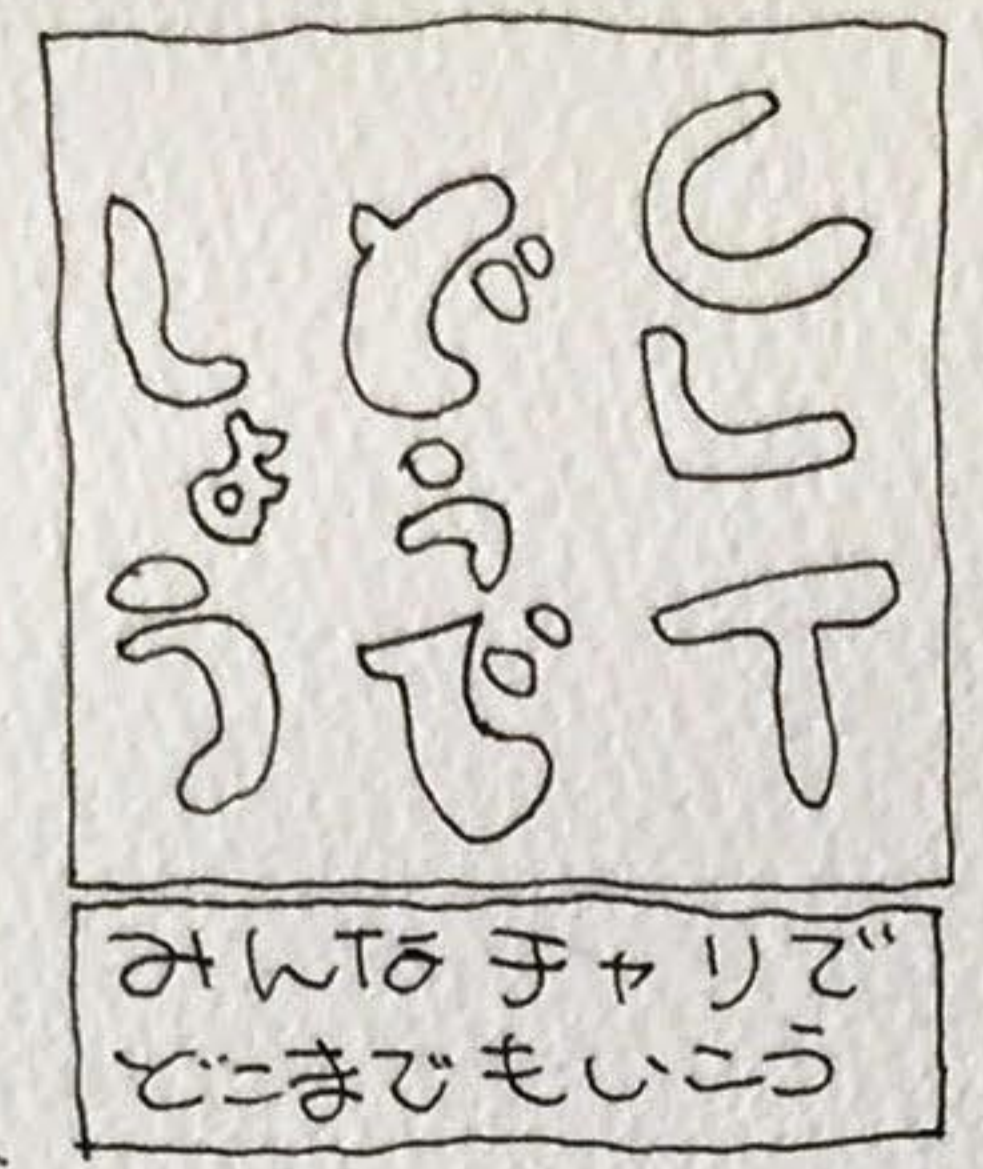 CLT
どうで
しょう
みんなチャリで
どこまでもいこう